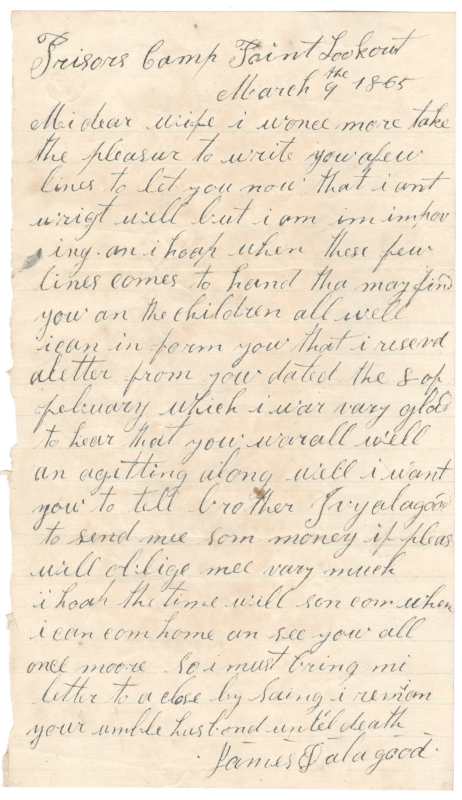 Prisors Camp Point Lookout
March the 9 1865
Mi dear wife i wonce more take
the pleasur to write you a few
lines to let you now that i ant
wrigt well but i am im improv
ing. an i hoap when these few
lines comes to hand tha may find
you an the children all well
i can in form you that i reserd
a letter from you dated the 8 of
februairy which i war vary glad
to hear that you war all well
an a gitting along well i want
you to tell brother Ivy
to send mee som money if pleas
will oblige mee vary much
i hoap the time will son com when
i can com home an see you all
once moore so i must bring mi
letter to a close by saing i remian
your umble husbond until death
James Alagood